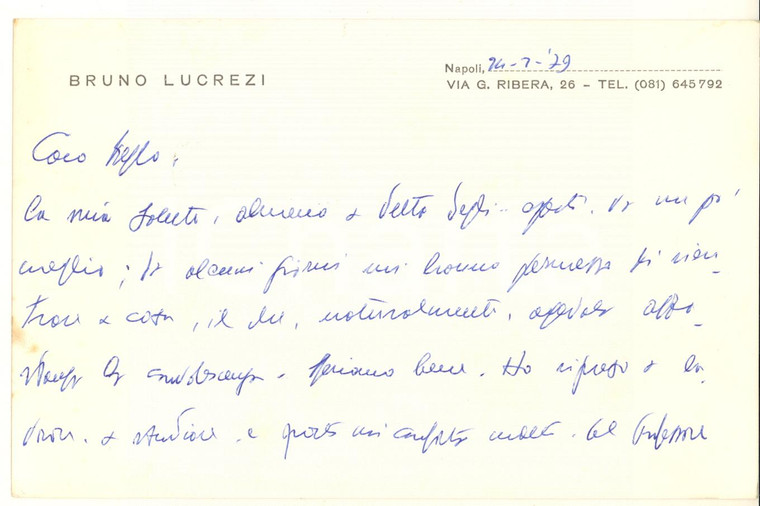 BRUNO LUCREZI
Napoli, 24-7-'79
VIA G. RIBERA, 26 – TEL. (081) 645792
Caro
la mia salute, almeno a detta degli esperti, va un po'
meglio; da alcuni giorni mi hanno permesso di rien-
trare a casa, il che, naturalmente, agevola abba-
stanza la convalescenza. Speriamo bene. Ho ripreso a la-
vorare, a studiare, e questo mi conforta molto. Al Professore